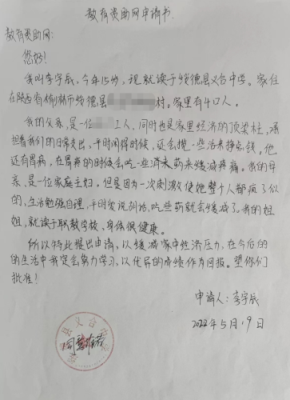 教育资助网申请书
教育资助网:
您好!
我叫李宇辰,今年15岁,现就读于绥德县义合中学。家住
在陕西省榆林市绥德县 村。家里有4口人。
我的父亲,是一位 工人,同时也是家里经济的顶梁柱,承
担着我们的日常支出,干时间得时候,还去做一些活来挣点钱。他
还有胃病,在胃疼的时候会吃一些消炎药来缓解疼痛。我的母
亲,是一位家庭主妇。但是因为一次刺激使她整个人替疯了似
的,生活勉强自理,干时发现闪活,吃些药就会缓减了我的担
姐,就读于职教学校,身体很健康。
所以特此提出申请,以缓减家中经济压力,在今后的
的生活中我定会努力学习,以优异的成绩作为回报。望你们
批准!
申请人:李宇辰
2022年5月19日
同意